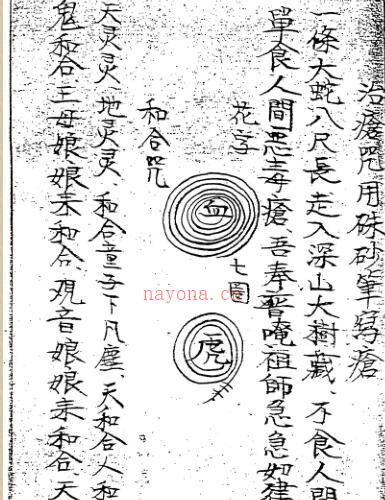 治瘡咒用硃砂筆寫瘡
一條大蛇八尺長走入深山大樹藏、不食人間
單食人間惡毒瘡、吾奉普唵祖師急急如律
花字
血
七圈
虎
和合咒
天灵灵、地灵灵 和合童子下凡塵、天和合人和
鬼和合王母娘娘来和合、观音娘娘来和合、天
nayona.cn